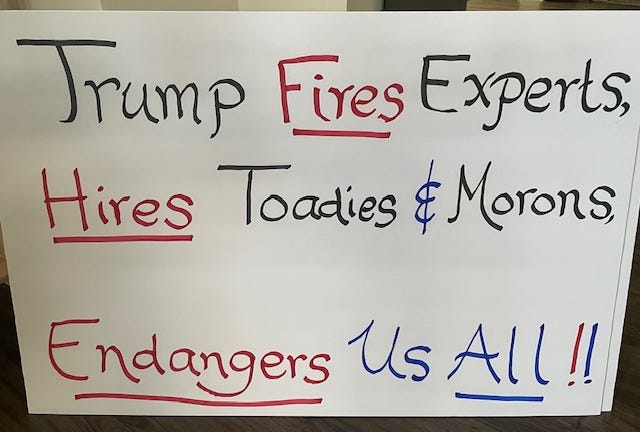 Trump Fires Experts,
Hires Toadies & Morons,
Endangers Us All!!